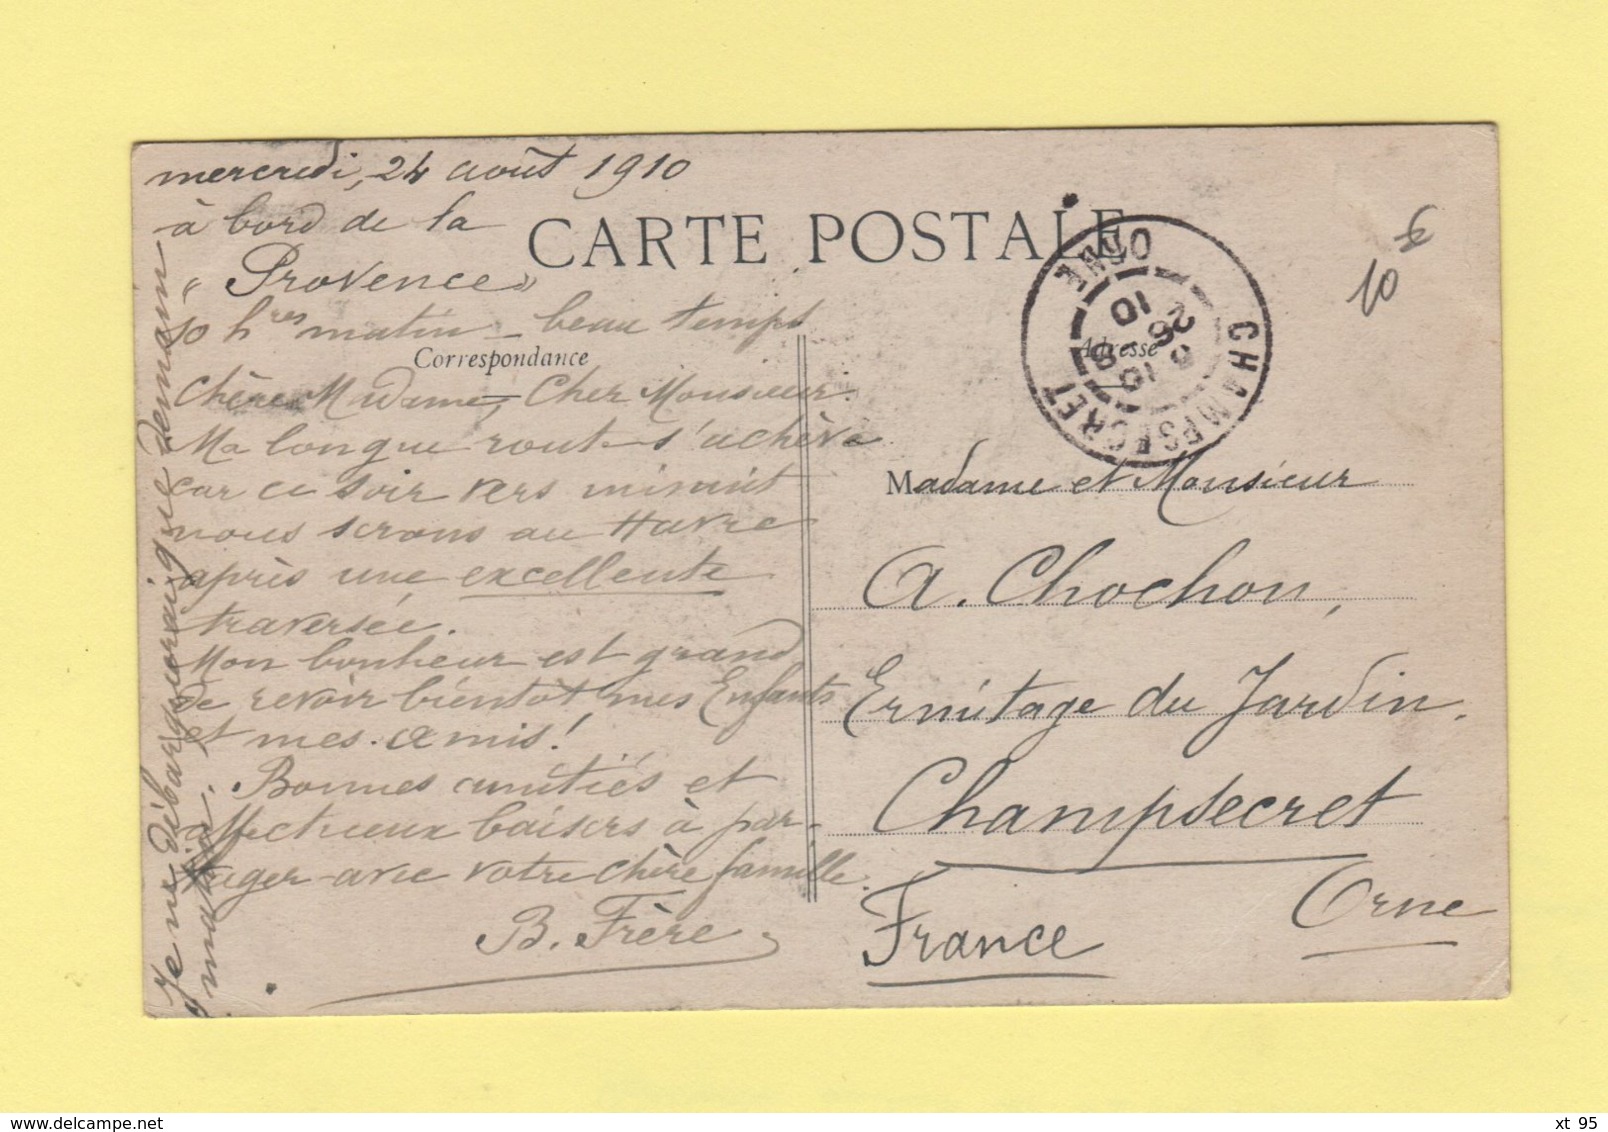 mercredi, 24 août 1910
à bord de la
"Provence"
10 hres matin - beau temps
CARTE POSTALE
Correspondance
Adresse
Chère Madame, Cher Monsieur.
Ma longue route s'achève
car ce soir vers minuit
nous serons au Havre
après une excellente
traversée.
Mon bonheur est grand
de revoir bientôt mes Enfants
et mes amis!
Bonnes amitiés et
affectueux baisers à par-
tager avec votre chère famille.
B. Frère
Je ne débarquerai que demain
matin.
CHAMPSECRET
ORNE
26
8
10
10 €
Madame et Monsieur
A. Chochon,
Ermitage du Jardin.
Champsecret
Orne
France
xt 95